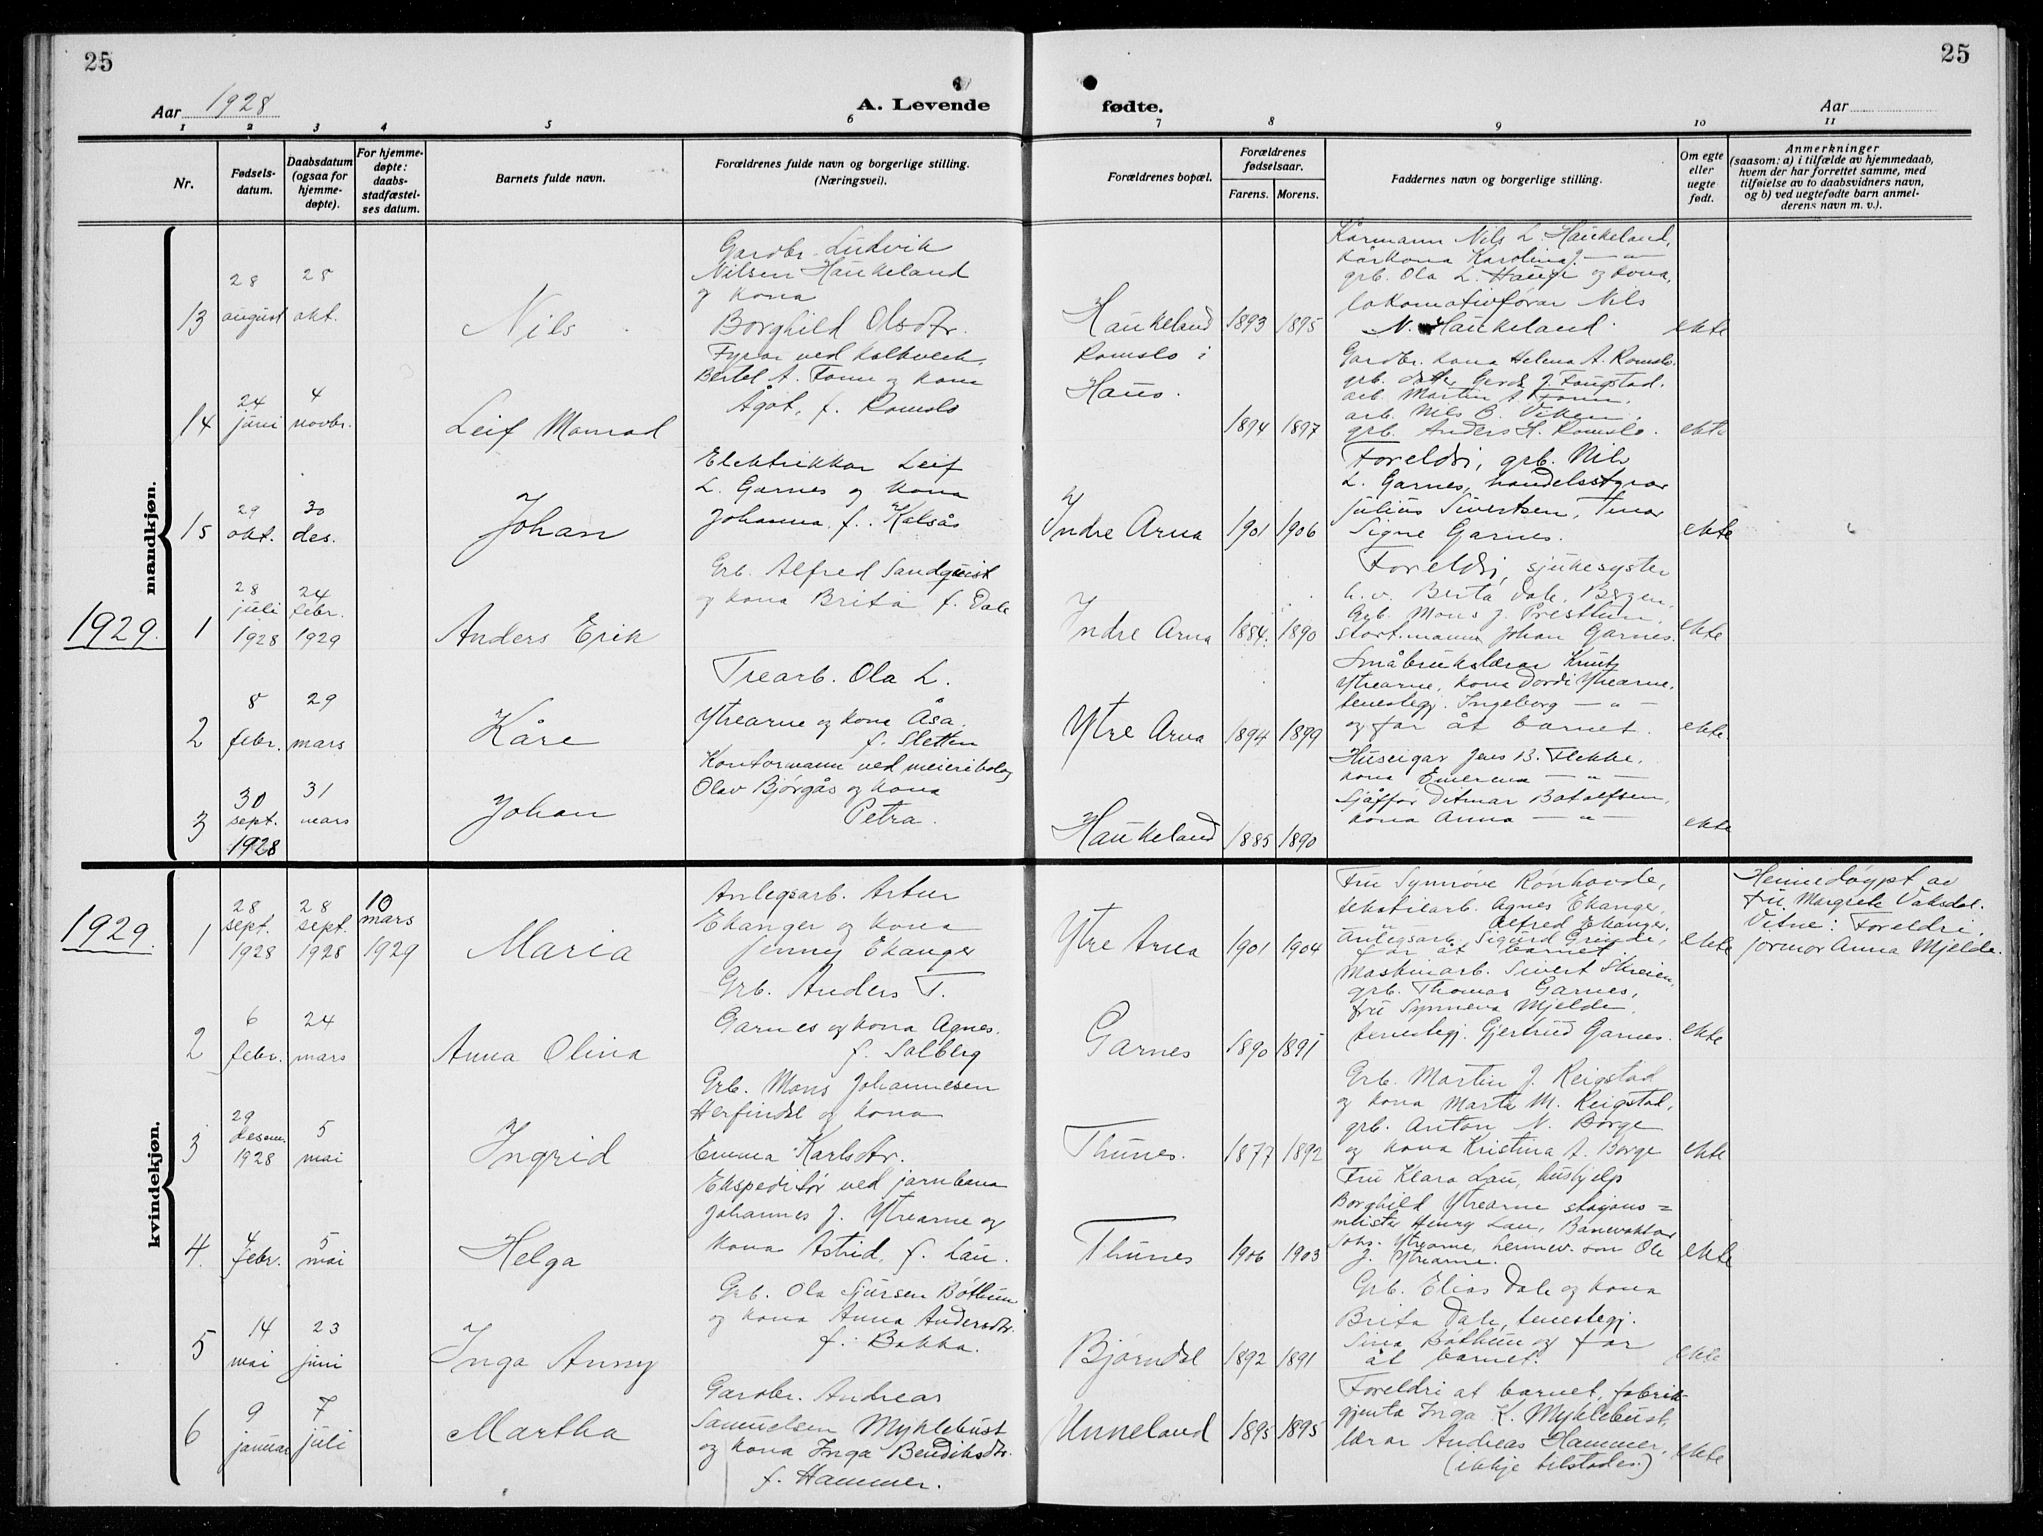 25
25
Aar 1928
A. Levende fødte.
Aar
1 2 3 4 5 6 7 8 9 10 11
Nr.
Fødsels-
datum.
Daabsdatum
(ogsaa for
hjemme-
døpte).
For hjemme-
døpte:
daabs-
stadfæstel-
ses datum.
Barnets fulde navn.
Forældrenes fulde navn og borgerlige stilling.
(Næringsvei.)
Forældrenes bopæl.
Forældrenes
fødselsaar.
Farens. Morens.
Faddernes navn og borgerlige stilling.
Om egte
eller
uegte
født.
Anmerkninger
(saasom: a) i tilfælde av hjemmedaab,
hvem der har forrettet samme, med
tilføielse av to daabsvidners navn,
og b) ved uegtefødte barn anmel-
derens navn m. v.).
mandkjøn.
13
28
august
28
okt.
Nils
Gardbr. Ludvik
Nilsen Haukeland
og kona
Borghild Olsdtr.
Haukeland
1893 1895
Kårmann Nils L. Haukeland,
kårkona Karolina J. — " —
grb. Ola L. Hauge og kona,
lokomativførar Nils
N. Haukeland.
ekte
14
24
juni
4
novbr.
Leif Monrad
Fyrar ved kalkverk
Bertel A. Fonn og kona
Ågot, f. Romslo
Romslo i
Haus.
1894 1897
Gardbr. kona Helena A. Romslo.
grb. dotter Gerda J. Faugstad.
arb. Martin A. Fonn,
arb. Nils B. Viken,
grb. Anders H. Romslo.
ekte
15
29
okt.
30
des.
Johan
Elektrikkar Leif
L. Garnes og kona
Johanna, f. Kalsås
Indre Arna
1901 1906
Foreldri, grb. Nils
L. Garnes, handelsstyrar
Julius Sivertsen,
Signe Garnes.
ekte
1929.
1
28
juli
1928
24
febr.
1929
Anders Erik
Grb. Alfred Sandquist
og kona Brita f. Dale
Indre Arna
1884. 1890
Foreldri, sjukesyster
h.v. Berta Dale, Bergen,
Grb. Mons J. Prestun,
stort.mann Johan Garnes.
ekte
2
8
febr.
29
mars
Kåre
Trearb. Ola L.
Ytrearne og kona Åsa.
f. Sletten
Ytre Arna
1894 1899
Småbrukslærar Knut
Ytrearne, kona Dordi Ytrearne,
tenestegj. Ingeborg — " —
og far åt barnet.
ekte.
3
30
sept.
1928
31
mars
Johan
Kontormann ved meieribolag
Olav Bjørgås og kona
Petra.
Haukeland
1885 1890
Huseigar Jens B. Flekke,
kona Emerens — " —
Sjåffør Ditmar Botolfsen,
kona Anna — " —
ekte
kvindekjøn.
1929.
1
28
sept.
1928
28
sept.
1928
10
mars
1929
Maria
Anlegsarb. Artur
Ekanger og kona
Jenny Ekanger
Ytre Arna
1901 1904
Fru Synnøve Rønhovde,
tekstilarb. Agnes Ekanger,
" Alfred Ekanger,
Anlegsarb. Sigurd Grinde,
far åt barnet.
ekte
Heimedøypt av
fru Margrete Vaksdal.
Vitne: Foreldri.
formor Anna Mjelde.
2
6
febr.
24
mars
Anna Olina
Grb. Anders T.
Garnes og kona Agnes.
f. Solberg
Garnes
1890 1891
Maskinarb. Sivert Skreien,
grb. Thomas Garnes,
fru Synneva Mjelde,
tenestegj. Gjertrud Garnes.
ekte
3
29
desem.
1928
5
mai
Ingrid
Grb. Mons Johannesen
Herfindal og kona
Emma Karlsdtr.
Thunes.
1877 1892
Grb. Martin J. Reigstad
og kona Marta M. Reigstad,
grb. Anton N. Borge
og kona Kristina A. Borge
ekte
4.
4
febr.
5
mai
Helga
Ekspeditør ved jarnbana
Johannes J. Ytrearne og
kona Astrid, f. Lau.
Thunes
1906 1903
Fru Klara Lau, hushjelp
Borghild Ytrearne stasjons =
meister Henry Lau, Banevaktar
Johs. Ytrearne, hennev. son Ole
J. Ytrearne.
ekte
5
14
mai
23
juni
Inga Anny
Grb. Ola Sjursen Bøthun
og kona Anna Andersdtr.
f. Bakka.
Bjørndal
1892 1891
Grb. Elias Dale og kona
Brita Dale, tenestegj.
Sina Bøthun og far
åt barnet.
ekte
6
9
januar
7
juli
Martha
Gardbr. Andreas
Samuelsen Myklebust
og kona Inga Bendiksdtr.
f. Hammer.
Unneland
1895 1895
Foreldri at barnet, fabrik-
gjenta Inga K. Myklebust,
lærar Andreas Hammer.
(ikkje tilstades.)
ekte